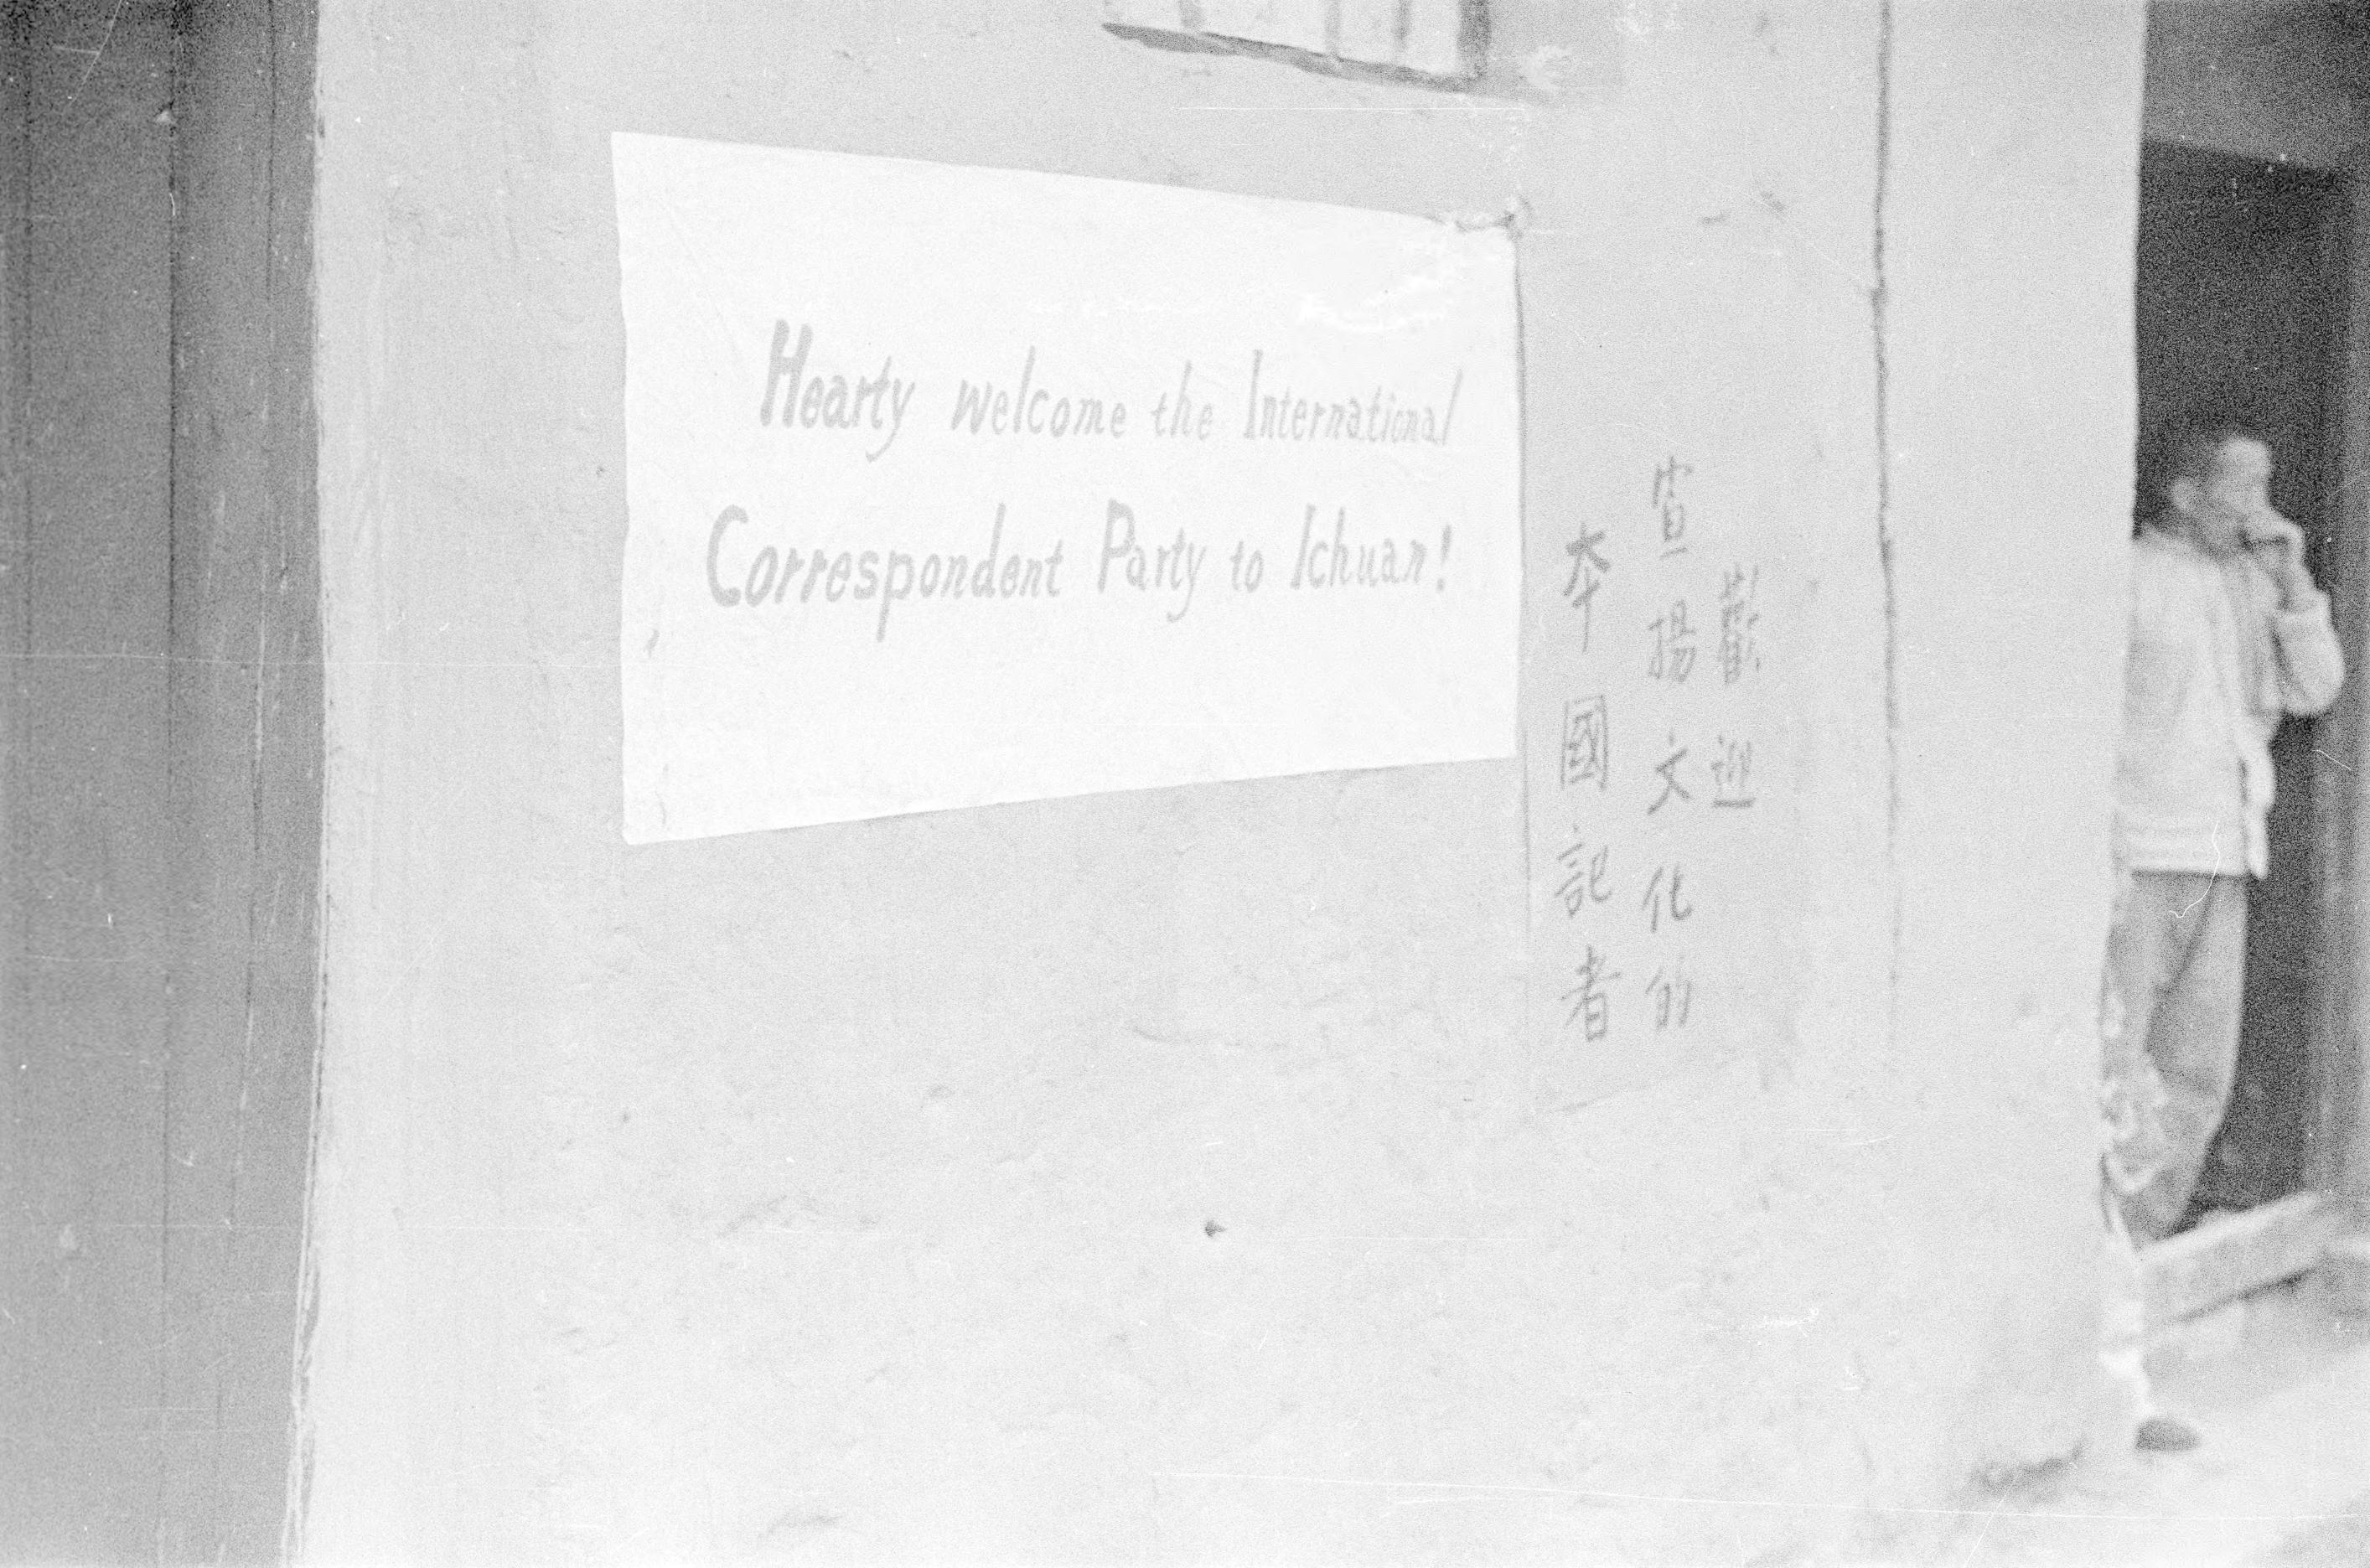 Hearty welcome the International
Correspondent Party to Ichuan!
歡迎
宣揚文化的
本國記者